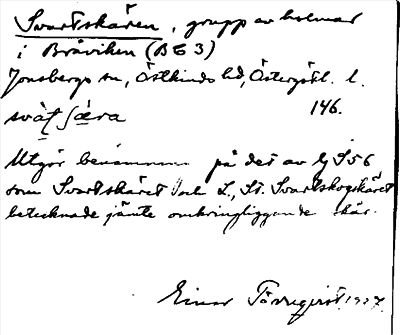 Svartskären, grupp av holmar
i Bråviken (BE 3)
Jonsbergs sn, Östkinds hd, Östergötl. l.
146.
svàʈ ʃæ̀ra
Utgör benämnn på det av GS56
som Svartskäret och L., St. Svartskogskäret
betecknade jämte omkringliggande skär.
Einar Törnqvist 1927.